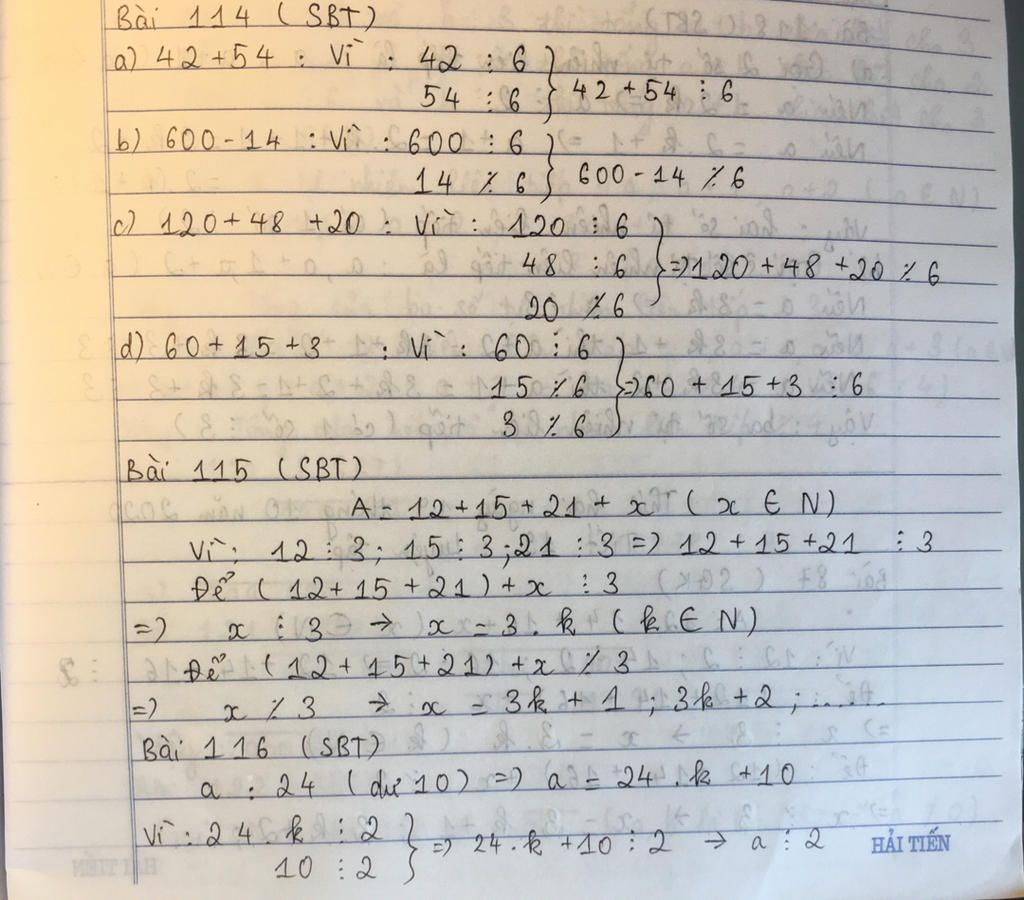 Bài 114 (SBT)
a) 42+54 : Vì : 42 ⋮ 6
54 ⋮ 6 } 42+54 ⋮ 6
b) 600-14 : Vì : 600 ⋮ 6
14 ⋮̸ 6 } 600-14 ⋮̸ 6
c) 120+48+20 : Vì : 120 ⋮ 6
48 ⋮ 6 } => 120+48+20 ⋮̸ 6
20 ⋮̸ 6
d) 60+15+3 : Vì : 60 ⋮ 6
15 ⋮̸ 6 } => 60+15+3 ⋮ 6
3 ⋮̸ 6
Bài 115 (SBT)
A = 12+15+21+x (x ∈ N)
Vì: 12 ⋮ 3; 15 ⋮ 3; 21 ⋮ 3 => 12+15+21 ⋮ 3
Để (12+15+21)+x ⋮ 3
=> x ⋮ 3 → x = 3.k (k ∈ N)
Để (12+15+21)+x ⋮̸ 3
=> x ⋮̸ 3 → x = 3k+1; 3k+2; ......
Bài 116 (SBT)
a : 24 (dư 10) => a = 24.k+10
Vì : 24.k ⋮ 2
10 ⋮ 2 } => 24.k+10 ⋮ 2 → a ⋮ 2
HẢI TIẾN